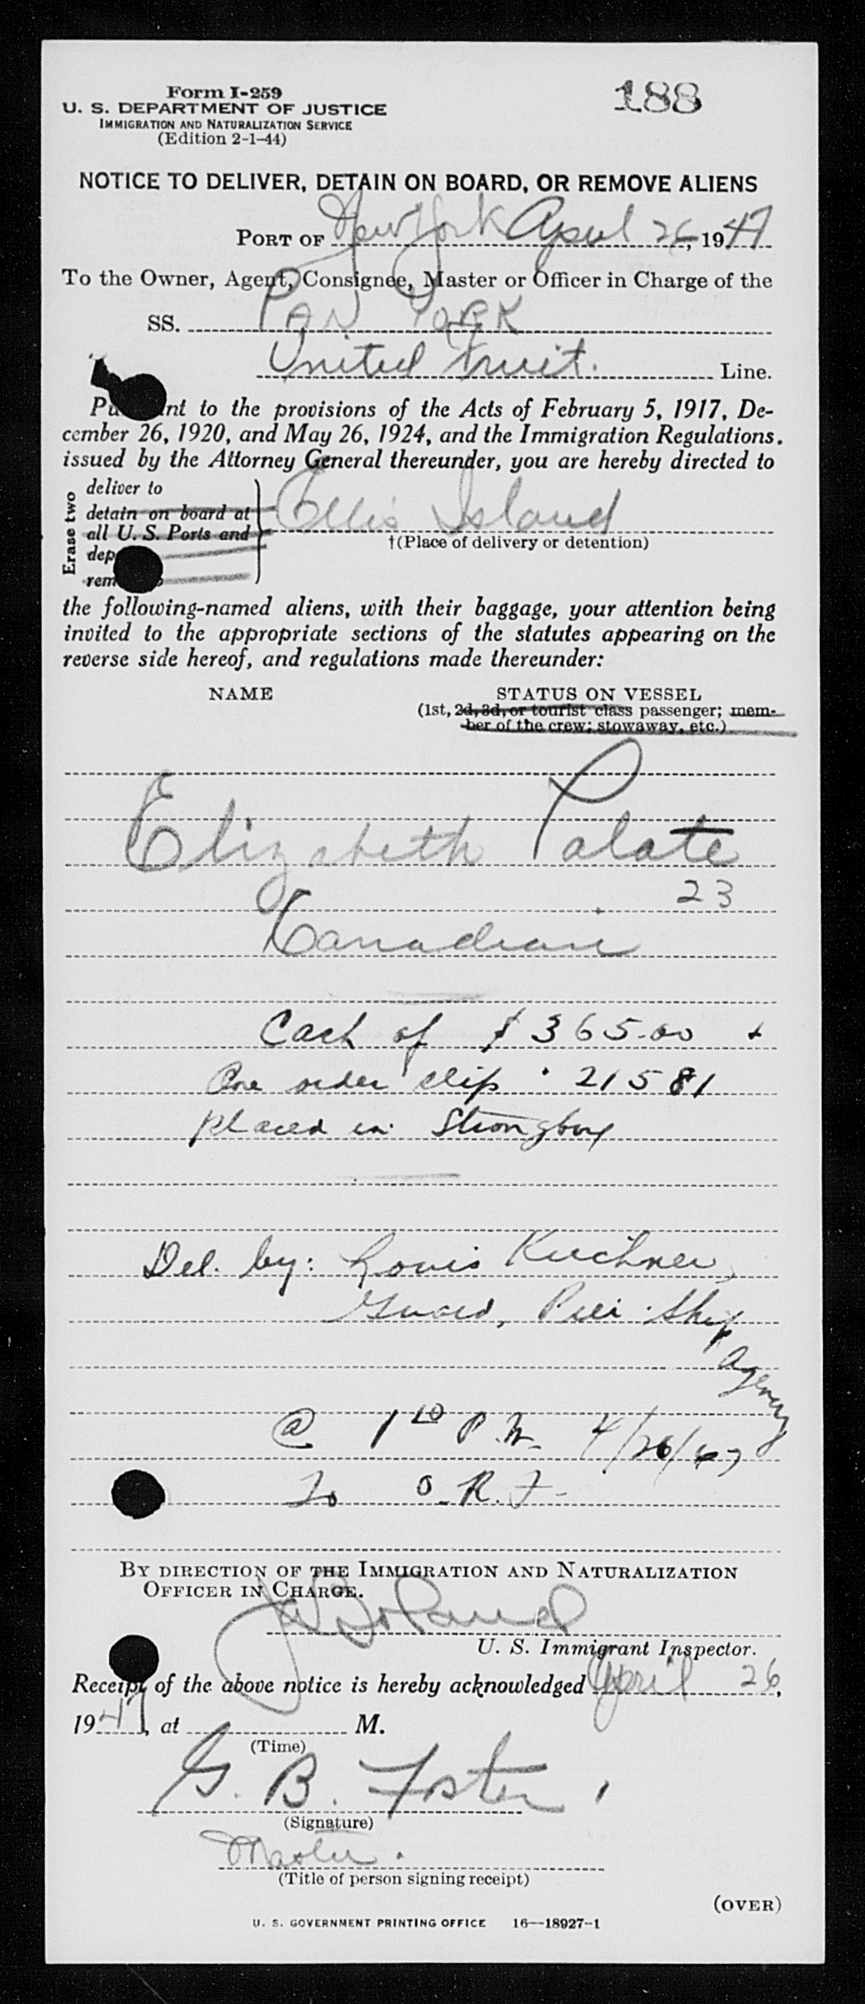 Form I-259
188
U. S. DEPARTMENT OF JUSTICE
IMMIGRATION AND NATURALIZATION SERVICE
(Edition 2-1-44)
NOTICE TO DELIVER, DETAIN ON BOARD, OR REMOVE ALIENS
PORT OF New York April 26, 1947
To the Owner, Agent, Consignee, Master or Officer in Charge of the
SS. PAN YORK
United Fruit. Line.
Pu nt to the provisions of the Acts of February 5, 1917, De-
cember 26, 1920, and May 26, 1924, and the Immigration Regulations.
issued by the Attorney General thereunder, you are hereby directed to
Erase two
deliver to
detain on board at
all U. S. Ports and
dep
rem
Ellis Island
†(Place of delivery or detention)
the following-named aliens, with their baggage, your attention being
invited to the appropriate sections of the statutes appearing on the
reverse side hereof, and regulations made thereunder:
NAME STATUS ON VESSEL
(1st, 2d, 3d, or tourist class passenger; mem-
ber of the crew; stowaway, etc.)
Elizabeth Palate
23
Canadian
Cash of $365.00 +
One order slip 21581
placed in Strongbox
Del. by: Louis Kirchner,
Guard, Pier Ship
Agency
@ 1 10 P.M. 4/26/47
To O.R.F.
BY DIRECTION OF THE IMMIGRATION AND NATURALIZATION
OFFICER IN CHARGE.
Boland
U. S. Immigrant Inspector.
Receipt of the above notice is hereby acknowledged April 26,
1947, at M.
(Time)
G. B. Foster
(Signature)
Master.
(Title of person signing receipt)
(OVER)
U. S. GOVERNMENT PRINTING OFFICE 16—18927-1